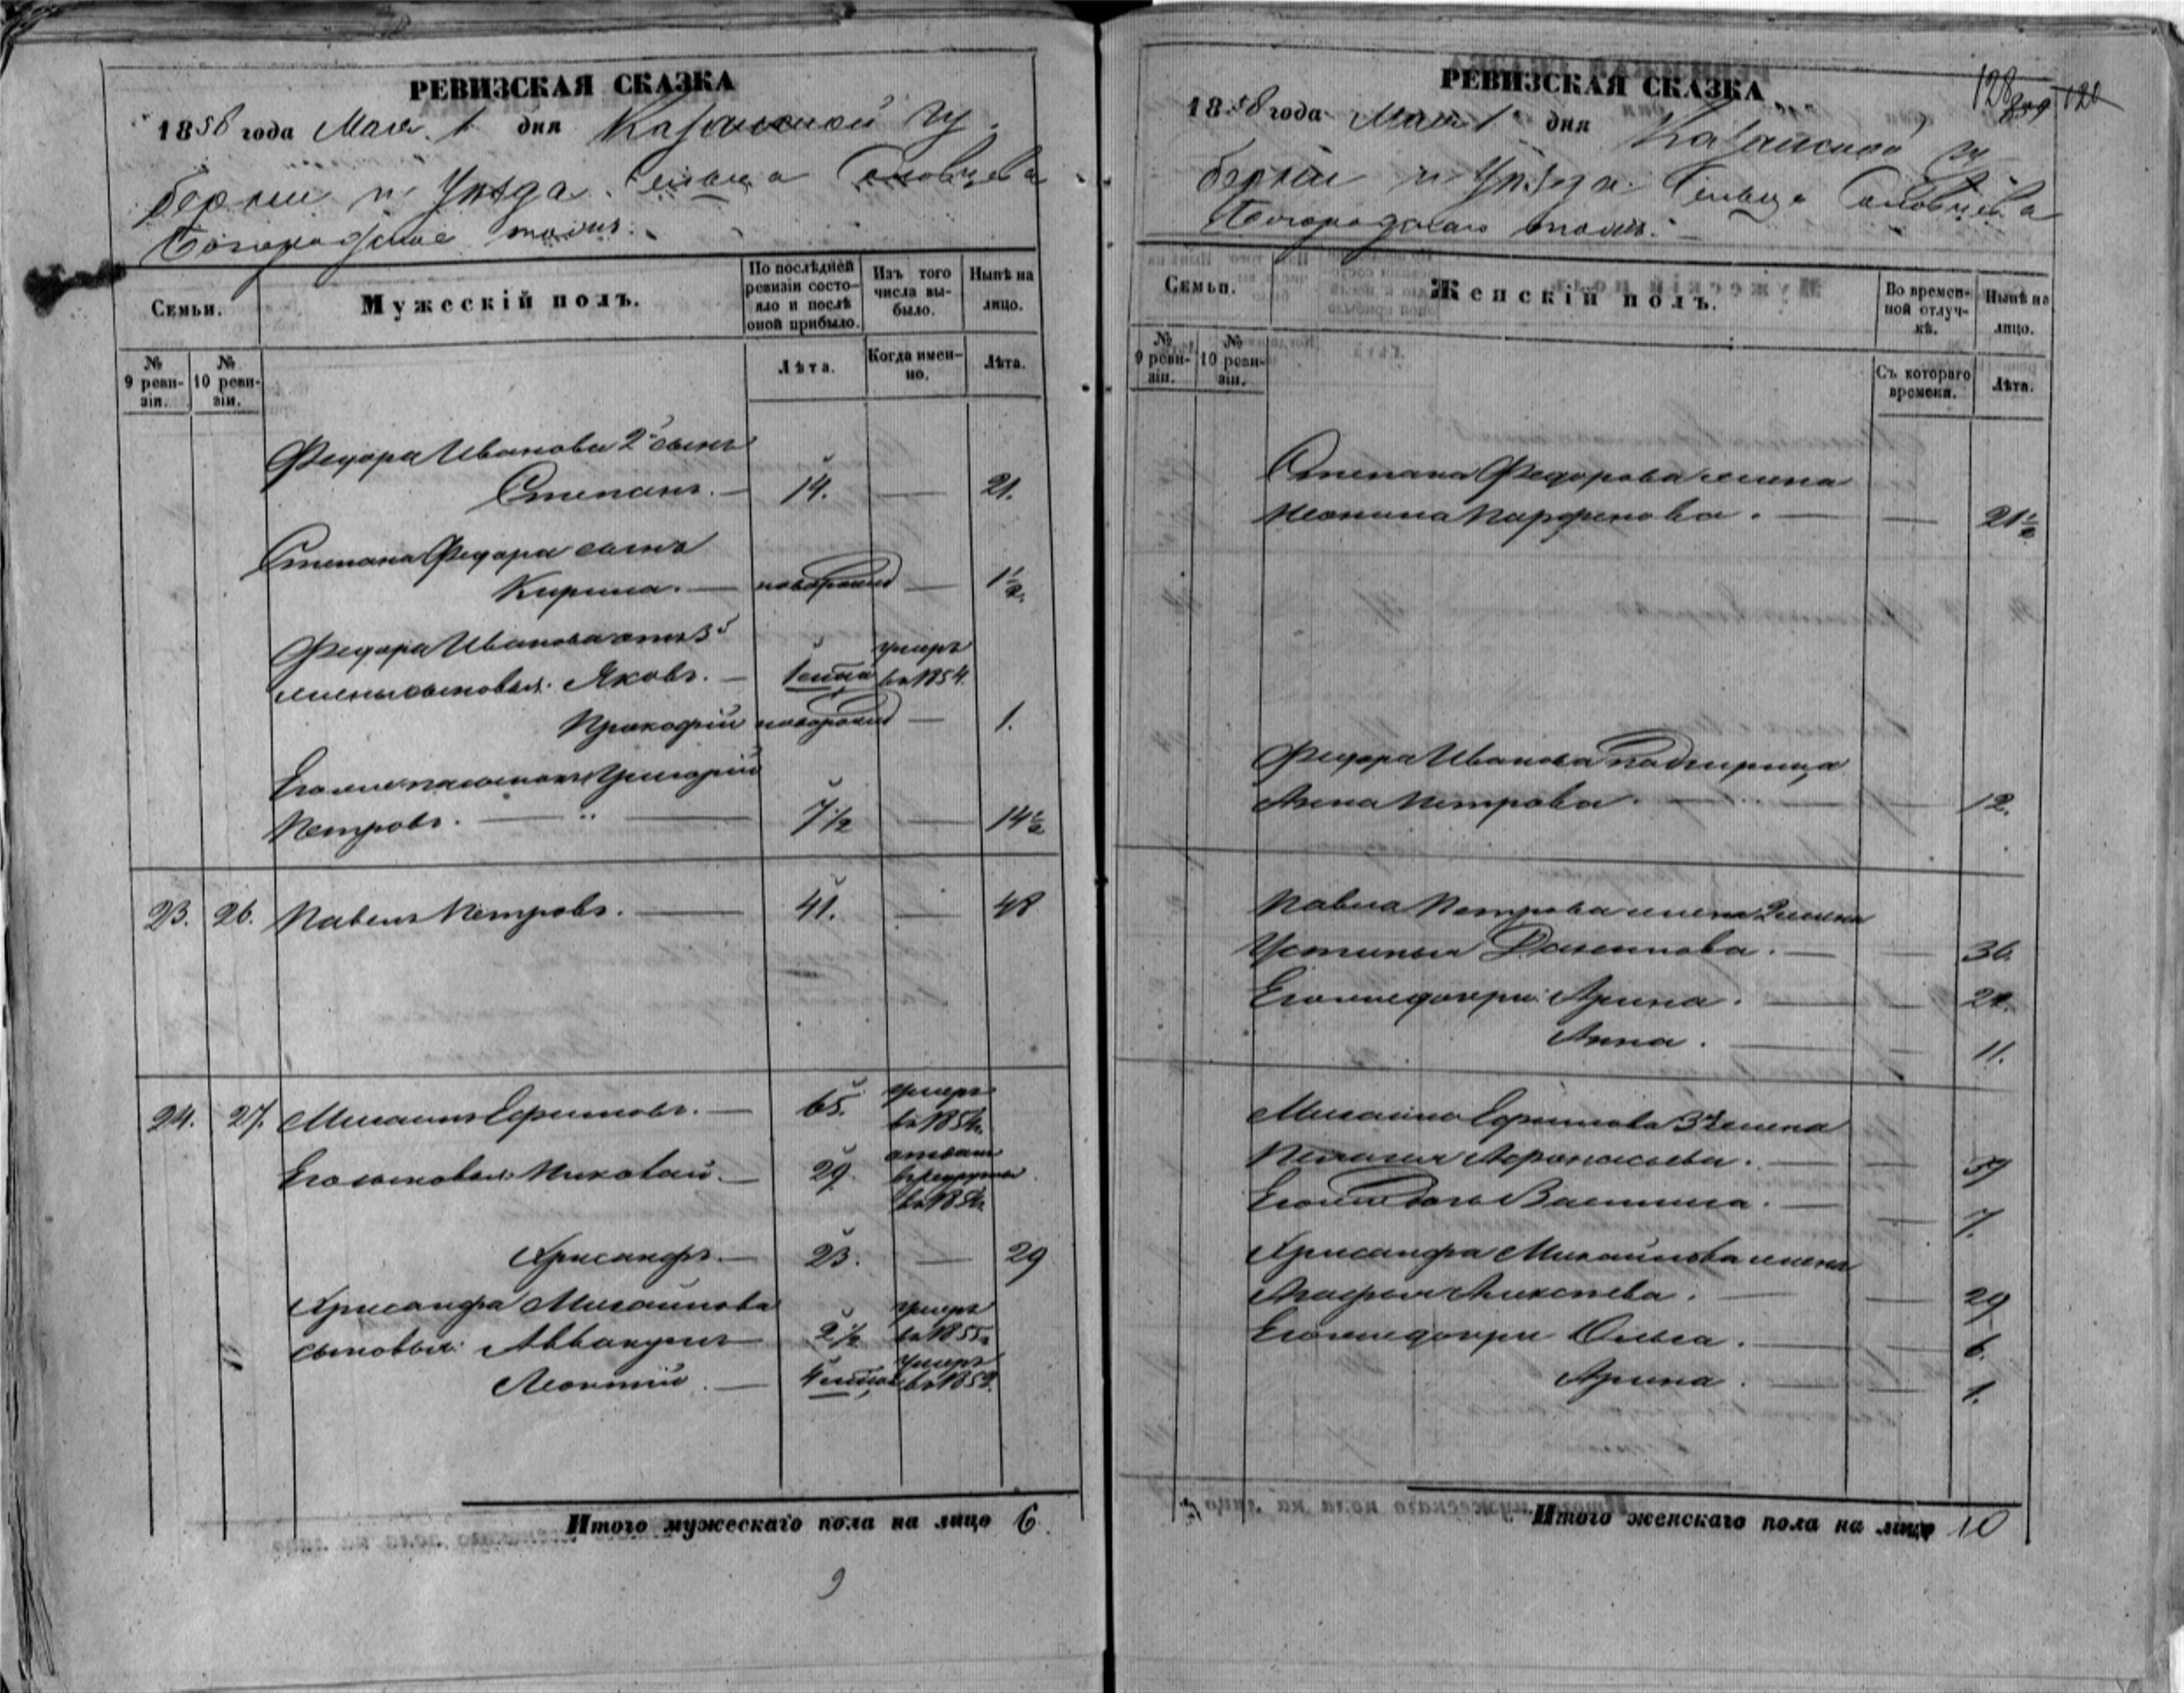 РЕВИЗСКАЯ СКАЗКА
1858 года Мая 1 дня Казанской гу
берніи и Уѣзда. Сельца
Богородское тожъ.
Семьи.
Мужескій полъ.
По послѣдней ревизіи состо-
яло и послѣ
оной прибыло.
Изъ того
числа вы-
было.
Нынѣ на
лицо.
№
9 реви-
зіи.
№
10 реви-
зіи.
Лѣта.
Когда имен-
но.
Лѣта.
Федора Иванова 2й сынъ
Степанъ. 14. 21.
Степана Федора сынъ
Кирила. новорожд 1 1/2.
Федора Иванова отъ 3й
жены сыновья: Яковъ. умеръ въ 1854
Прокофій новорожд 1.
Григорій
Петровъ. 7 1/2 14 1/2
23. 26. Павелъ Петровъ. 41. 48
24. 27. Михаилъ Ефимовъ. 65. умеръ въ 1854.
Его сыновья: Николай. 29. отданъ
въ рекруты
въ 1854.
Хрисанфъ. 23. 29
Хрисанфа Михайлова
сыновья: Аввакумъ 2 1/2 умеръ въ 1855
Леонтій. умеръ въ 1852.
Итого мужескаго пола на лицо 6.
9
128
РЕВИЗСКАЯ СКАЗКА
1858 года Мая 1 дня Казанской гу
берніи и Уѣзда. Сельца
Богородское тожъ.
Семьи.
Женскій полъ.
Во времен-
ной отлуч-
кѣ.
Нынѣ на
лицо.
№
9 реви-
зіи.
№
10 реви-
зіи.
Съ котораго
времени.
Лѣта.
Степана Федорова жена
Парфенова. 21 1/2
Федора Иванова падчерица
Анна Петрова. 12.
Павла Петрова жена
Устинья Данилова. 36.
Его же дочери: Арина.
Анна. 11.
Михайла Ефимова 3я жена
Пелагея Афонасьева. 59
Его же дочь Василиса. 7.
Хрисанфа Михайлова жена
Агафья Алексѣева. 29
Его же дочери Ольга. 6.
Арина. 1.
Итого женскаго пола на лицо 10